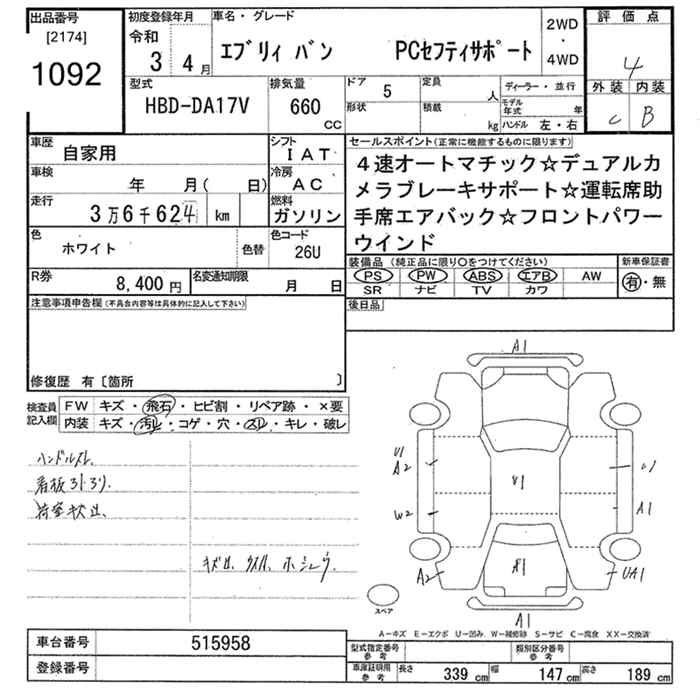 出品番号
[2174]
1092
初度登録年月
令和
3 4月
車名・グレード
エブリィ バン PCセフティサポート
2WD
・
4WD
評価点
4
外装 内装
C B
型式
HBD-DA17V
排気量
660
CC
ドア 5
形状
定員 人
積載 kg
ディーラー・並行
モデル年式 年
ハンドル 左・右
車歴
自家用
シフト
IAT
車検
年 月( 日)
冷房
AC
走行
3万6千624 km
燃料
ガソリン
色
ホワイト
色替
色コード
26U
R券
8,400円
名変通知期限
月 日
セールスポイント(正常に機能するものに限ります)
4速オートマチック☆デュアルカ
メラブレーキサポート☆運転席助
手席エアバック☆フロントパワー
ウインド
装備品 (純正品に限り○をつけてください)
PS PW ABS エアB AW
SR ナビ TV カワ
新車保証書
有・無
後日品
注意事項申告欄(不具合内容等は具体的に記入して下さい)
修復歴 有〔箇所 〕
検査員
記入欄
FW キズ・飛石・ヒビ割・リペア跡・×要
内装 キズ・汚レ・コゲ・穴・スレ・キレ・破レ
ハンドルスレ
荷室キズ
A1
U1
A2
W2
A2
U1
A1
UA1
A1
A1
スペア
A-キズ E-エクボ U-凹み W-補修跡 S-サビ C-腐食 XX-交換済
車台番号
515958
登録番号
型式指定番号
参考
類別区分番号
参考
車庫証明用
参考
長さ 339cm 幅 147cm 高さ 189cm